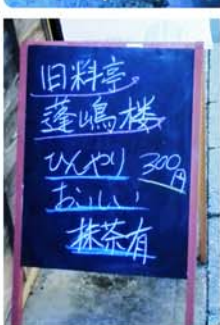 旧料亭
蓬嶋楼
ひんやり 300円
おいしい
抹茶有